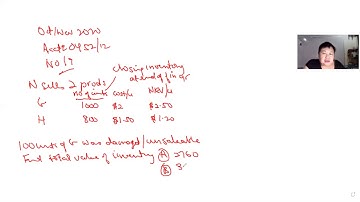 Oct/Nov 2020
Acct 0452/12
No 17
N sells 2 prods
closing inventory
at end of fin yr
no of units cost/u NRV/u
G 1000 $2 $2.50
H 800 $1.50 $1.20
100 units of G was damaged/unsaleable
Find total value of inventory (A) 2760
(B)